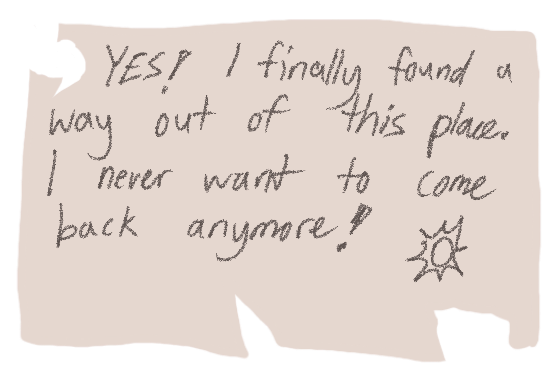 YES! I finally found a
way out of this place.
I never want to come
back anymore!